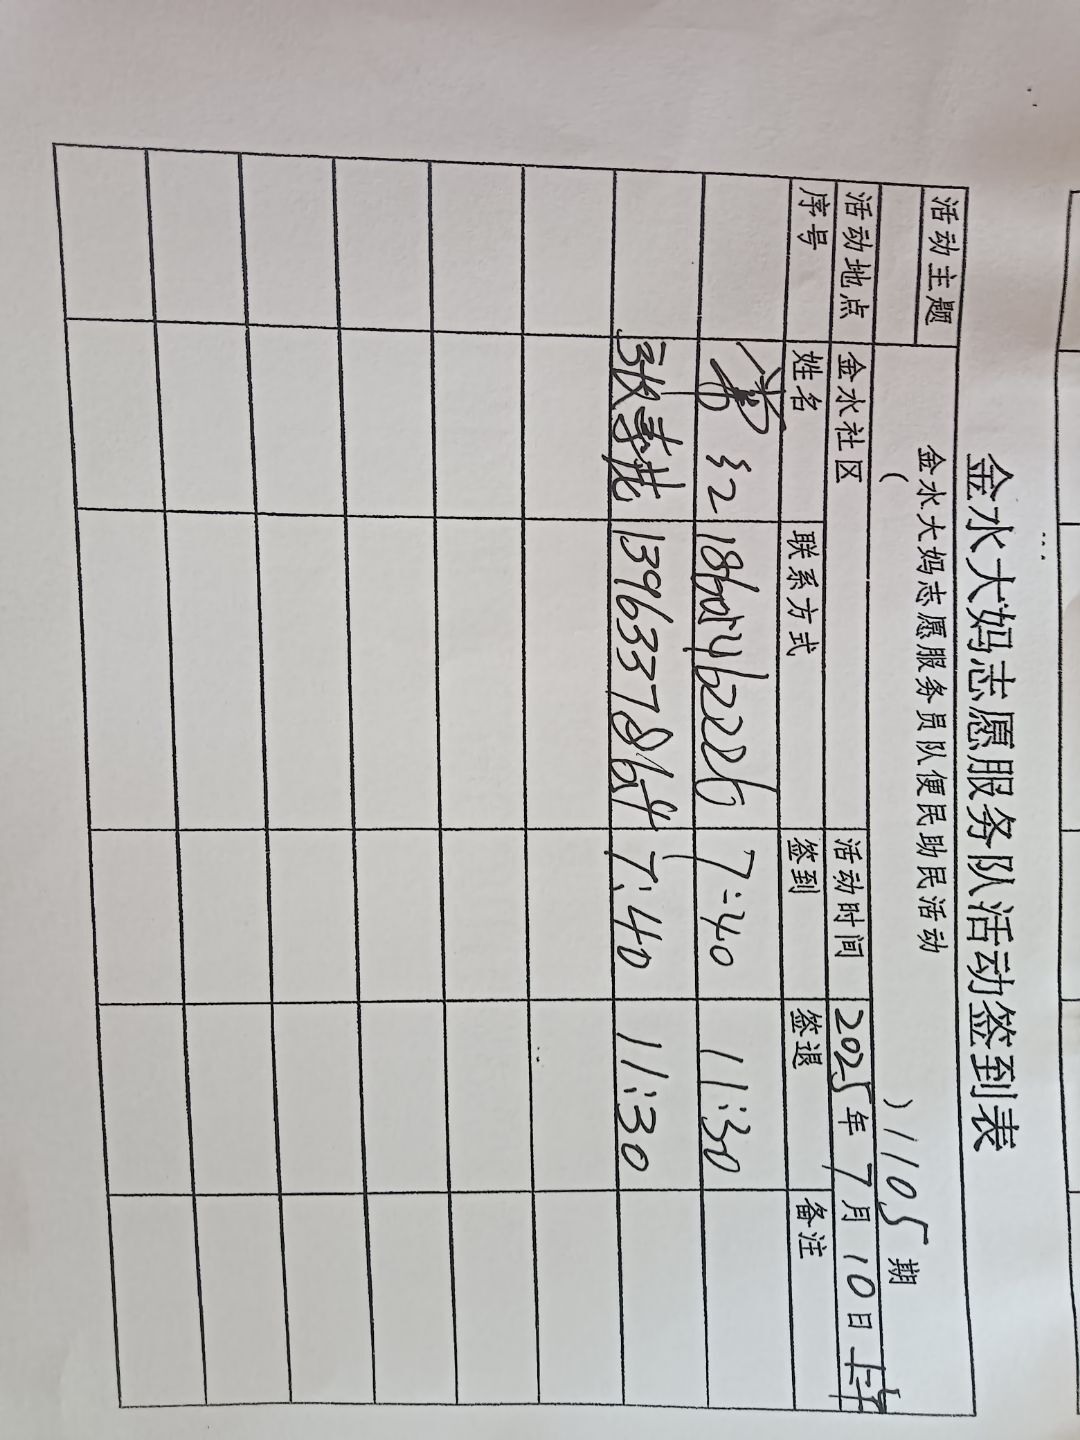 金水大妈志愿服务队活动签到表
活动主题 金水大妈志愿服务员队便民助民活动
( ) 1105 期
活动地点 金水社区 活动时间 2025年 7月 10日 上午
序号 姓名 联系方式 签到 签退 备注
7:40 11:30
张 13963378 7:40 11:30